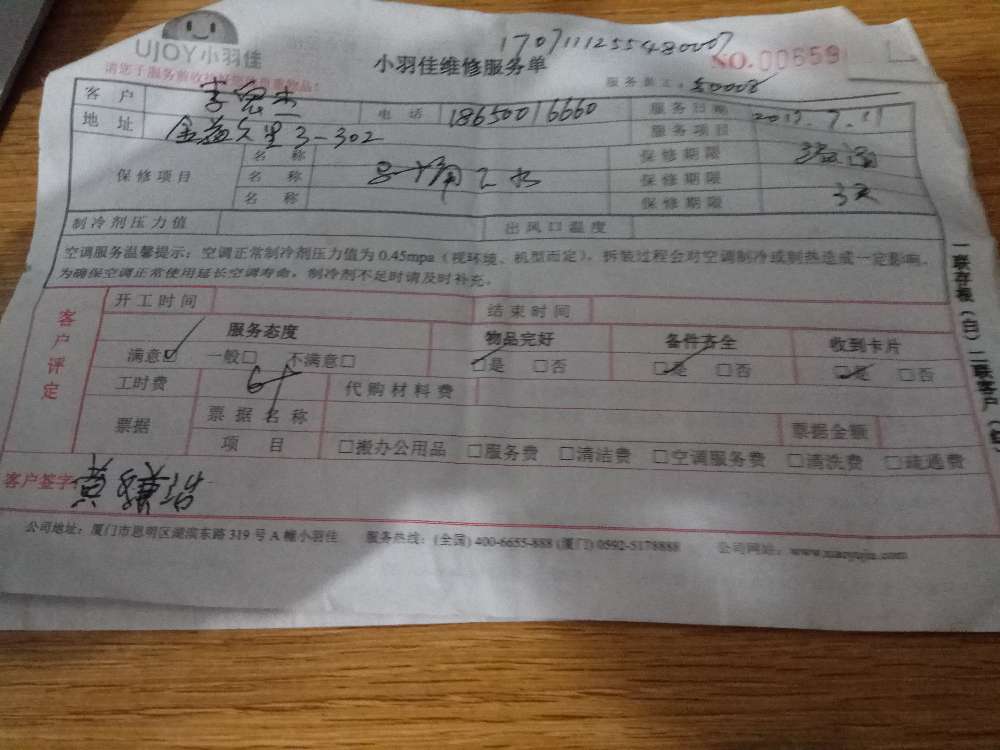 UJOY小羽佳
1707111255480007
小羽佳维修服务单
NO.00659
服务员工：50008
客户 李 电话 18650016660 服务日期 2017.7.11
地址 金益久里3-302 服务项目 疏通
保修项目 名称 保修期限
名称 保修期限 3天
名称 保修期限
制冷剂压力值 出风口温度
空调服务温馨提示：空调正常制冷剂压力值为0.45mpa（视环境、机型而定），拆装过程会对空调制冷或制热造成一定影响。
为确保空调正常使用延长空调寿命，制冷剂不足时请及时补充。
客户评定
开工时间 结束时间
服务态度 物品完好 备件齐全 收到卡片
满意□ 一般□ 不满意□ □是 □否 □是 □否 □是 □否
工时费 代购材料费
票据 票据名称 票据金额
项目 □搬办公用品 □服务费 □清洁费 □空调服务费 □清洗费 □疏通费
客户签字: 黄
公司地址：厦门市思明区湖滨东路319号A幢小羽佳 服务热线：(全国) 400-6655-888 (厦门) 0592-5178888 公司网站：www.xiaoyujia.com
一联存根（白）二联客户（